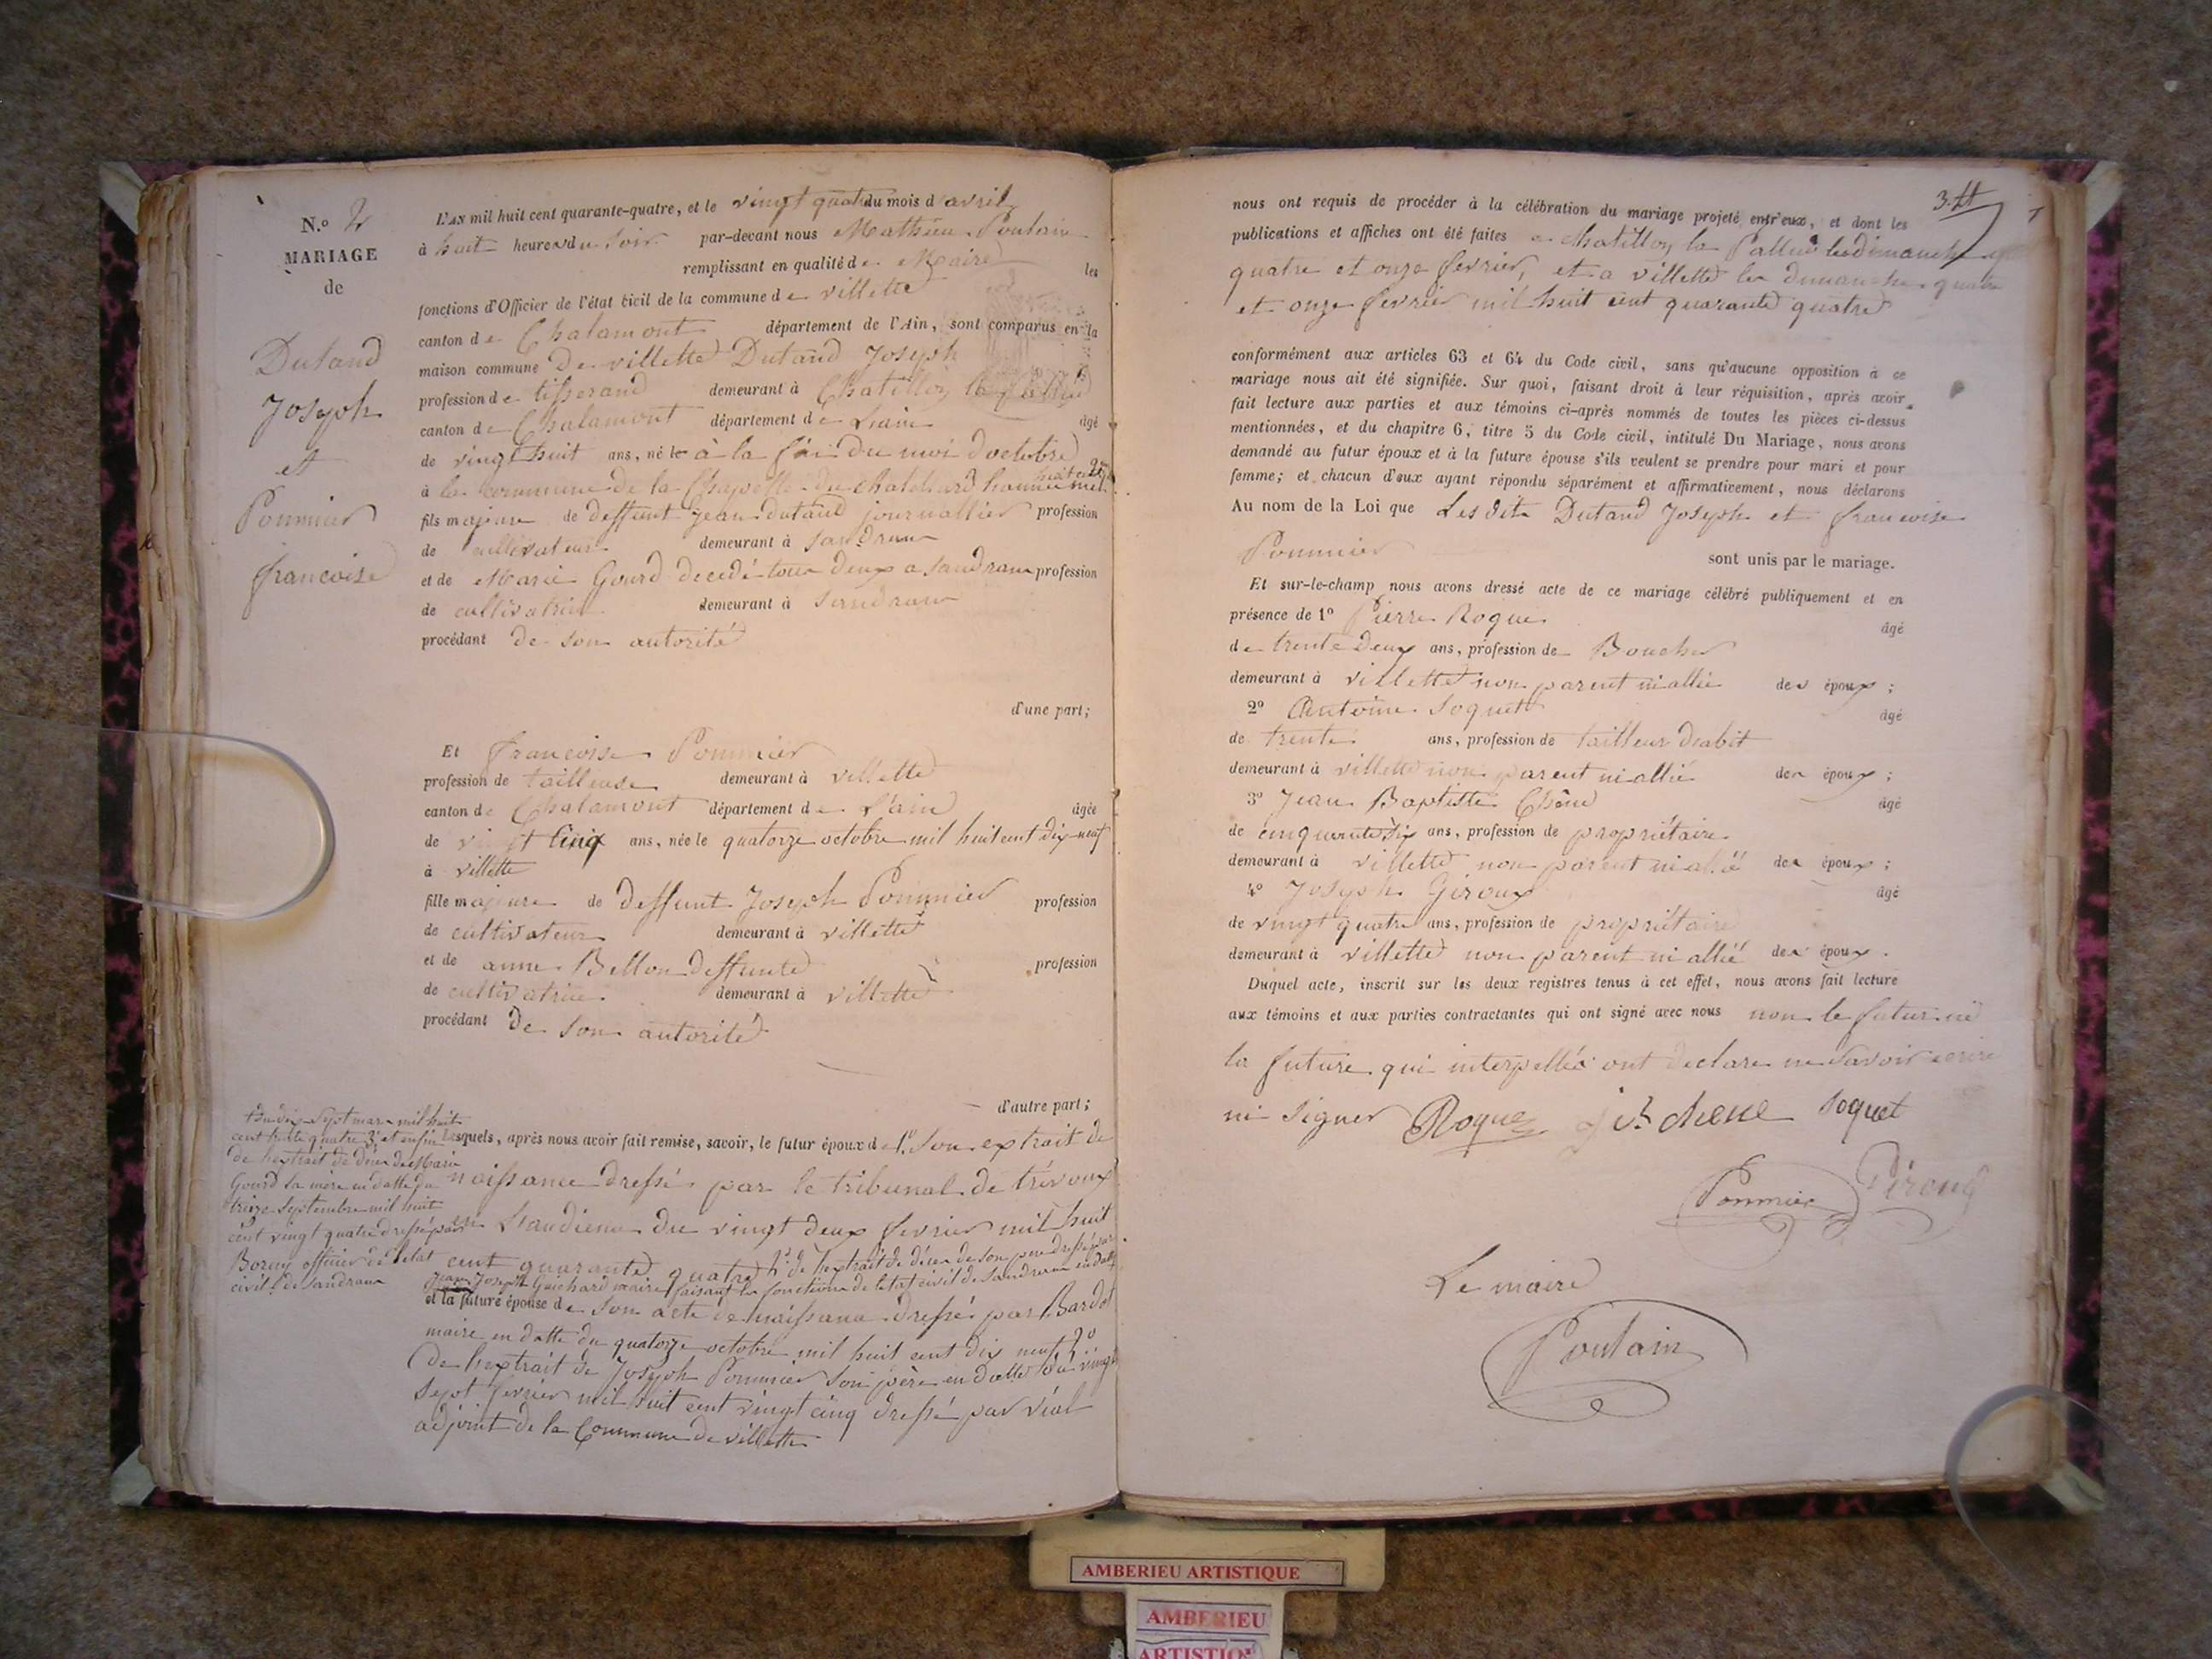 N.º 2
MARIAGE
de
Dutand
Joseph
et
Pommier
francoise
L'AN mil huit cent quarante-quatre, et le vingt quatre du mois d'avril
à huit heures du soir par-devant nous Mathieu Poulain
remplissant en qualité de Maire les
fonctions d'Officier de l'état civil de la commune de villette
canton de Chalamont département de l'Ain, sont comparus en la
maison commune De villette Dutand Joseph
profession de tisserand demeurant à Chatillon la palud
canton de Chalamont département de Lain âgé
de vingt huit ans, né le à la fin du moi doctobre
à la commune de la Chapelle du chatelard
fils majeure de deffunt jean dutand journallier profession
de cultivateur demeurant à Sandrans
et de Marie Gourd decedé tous deux a Sandrans profession
de cultivatrice demeurant à Sandrans
procédant de son autorité
d'une part;
Et francoise Pommier
profession de tailleuse demeurant à villette
canton de Chalamont département de L'ain âgée
de vingt cinq ans, née le quatorze octobre mil huit cent dix neuf
à villette
fille majeure de deffunt Joseph Pommier profession
de cultivateur demeurant à villette
et de anne Bellon deffunte profession
de cultivatrice demeurant à villette
procédant de son autorité
d'autre part;
Lesquels, après nous avoir fait remise, savoir, le futur époux de 1º son extrait de
naissance dressé par le tribunal de trévoux
en Laudience du vingt deux fevrier mil huit
cent quarante quatre 2º de lextrait de décès de son pere dressé par
jean Joseph Guichard maire faisant les fonctions de letat civil de Sandrans en datte
+ du dix sept mars mil huit
cent trente quatre 3º et enfin
de lextrait de décès de Marie
Gourd sa mere en datte du
treize septembre mil huit
cent vingt quatre dressé par
officier de letat
civil de Sandrans
et la future épouse de son acte de naissance dressé par Bardot
maire en datte du quatorze octobre mil huit cent dix neuf 2º
De lextrait de Joseph Pommier son père en datte du vingt
sept fevrier mil huit cent vingt cinq dressé par vial
adjoint de la Commune de villette
3.
nous ont requis de procéder à la célébration du mariage projeté entr'eux, et dont les
publications et affiches ont été faites a chatillon la Pallud les dimanche
quatre et onze fevrier, et a villette les dimanche quatre
et onze fevrier mil huit cent quarante quatre
conformément aux articles 63 et 64 du Code civil, sans qu'aucune opposition à ce
mariage nous ait été signifiée. Sur quoi, faisant droit à leur réquisition, après avoir
fait lecture aux parties et aux témoins ci-après nommés de toutes les pièces ci-dessus
mentionnées, et du chapitre 6, titre 5 du Code civil, intitulé Du Mariage, nous avons
demandé au futur époux et à la future épouse s'ils veulent se prendre pour mari et pour
femme; et chacun d'eux ayant répondu séparément et affirmativement, nous déclarons
Au nom de la Loi que Les dits Dutand Joseph et francoise
Pommier sont unis par le mariage.
Et sur-le-champ nous avons dressé acte de ce mariage célébré publiquement et en
présence de 1º Pierre Roque âgé
de trente deux ans, profession de Boucher
demeurant à villette non parent ni allié des époux;
2º Antoine Soquet âgé
de trente ans, profession de tailleur dabit
demeurant à villette non parent ni allié des époux;
3º Jean Baptiste Chêne âgé
de cinquante six ans, profession de propriétaire
demeurant à villette non parent ni allié des époux;
4º Joseph Giroux âgé
de vingt quatre ans, profession de propriétaire
demeurant à villette non parent ni allié des époux.
Duquel acte, inscrit sur les deux registres tenus à cet effet, nous avons fait lecture
aux témoins et aux parties contractantes qui ont signé avec nous non le futur ni
la future qui interpellés ont declare ne savoir ecrire
ni signer Roque chene Soquet
Pommier
Le maire
Poulain
AMBERIEU ARTISTIQUE
AMBERIEU
ARTISTIQ